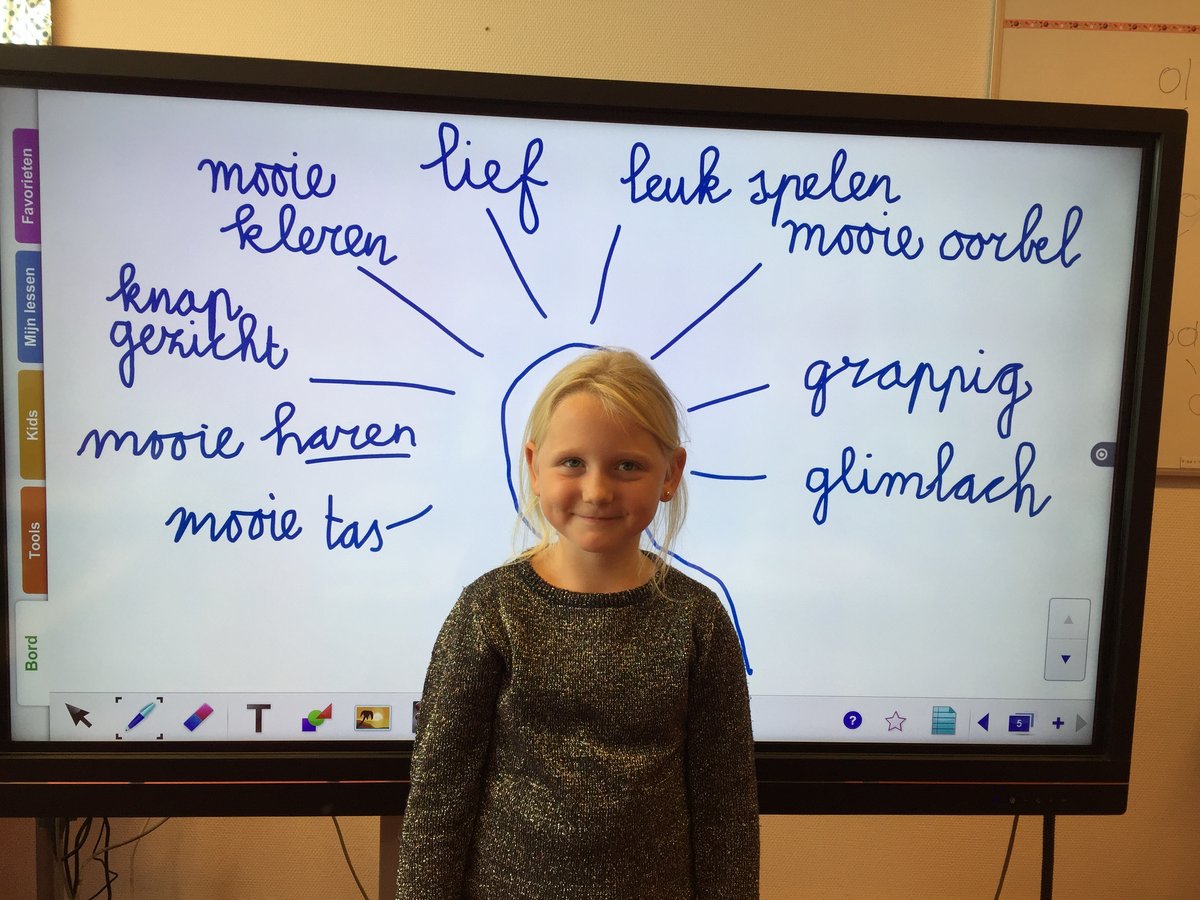 mooie
kleren
lief
leuk spelen
mooie oorbel
knap
gezicht
grappig
mooie haren
glimlach
mooie tas
Favorieten
Mijn lessen
Kids
Tools
Bord
T
?
5